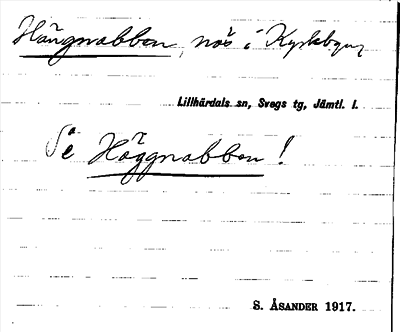 Hängnabben, näs i Kyrkbyn,
Lillhärdals sn, Svegs tg, Jämtl. l.
Se Häggnabben!
S. ÅSANDER 1917.